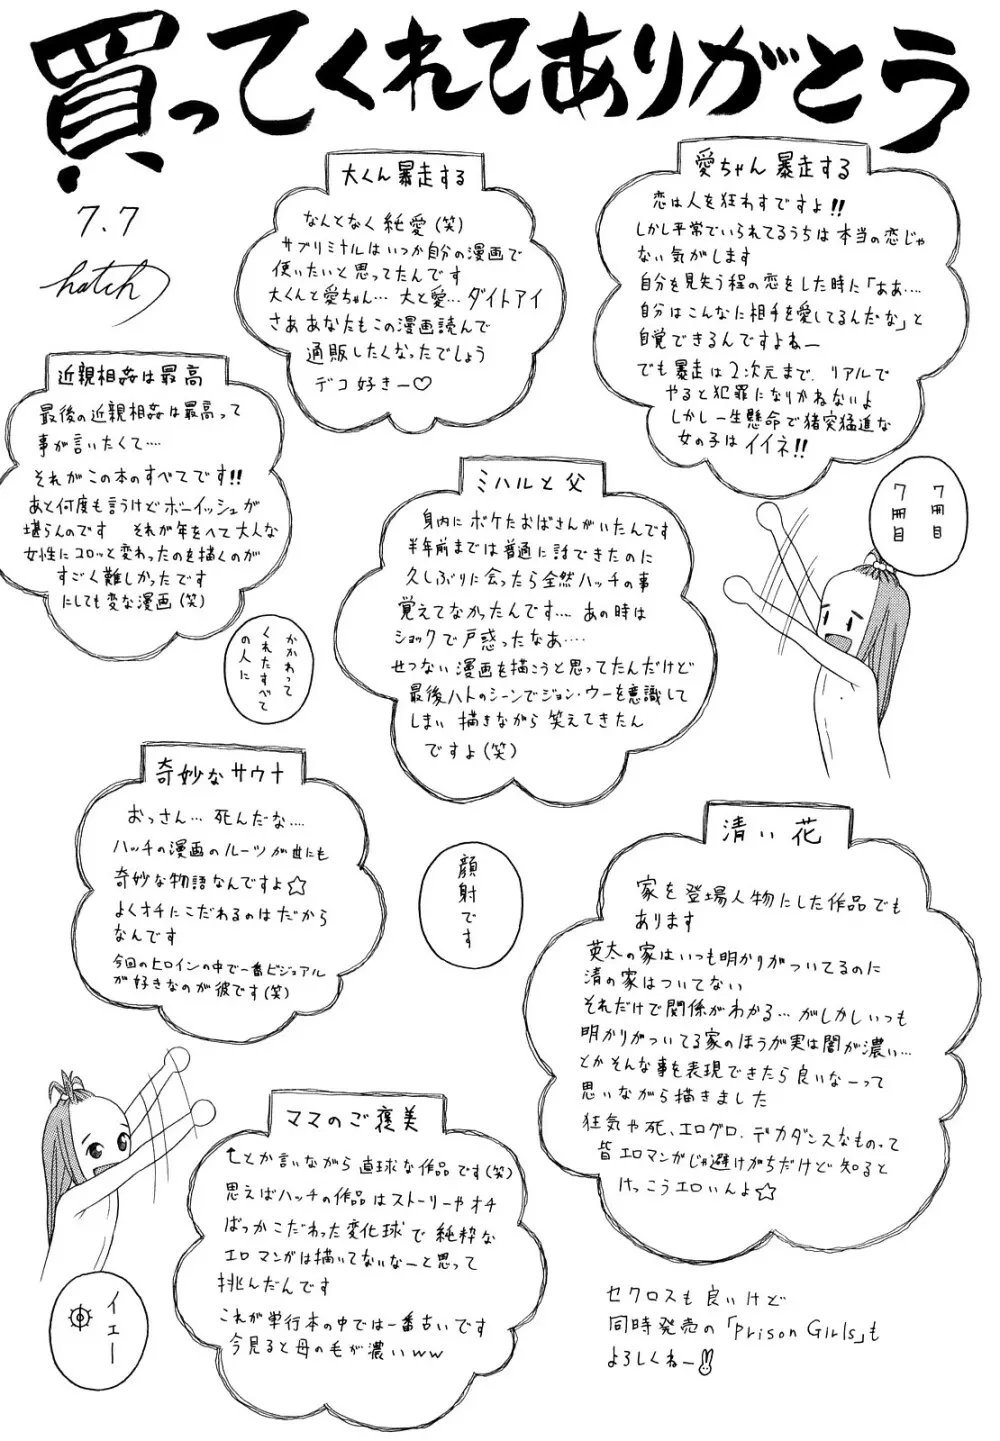 買ってくれてありがとう
7.7
hatch
大くん暴走する
なんとなく純愛(笑)
サブリミナルはいつか自分の漫画で
使いたいと思ってたんです
大くんと愛ちゃん…大と愛…ダイトアイ
さああなたもこの漫画読んで
通販したくなったでしょう
デコ好きー♡
愛ちゃん暴走する
恋は人を狂わすですよ!!
しかし平常でいられてるうちは本当の恋じゃ
ない気がします
自分を見失う程の恋をした時に「ああ…
自分はこんなに相手を愛してるんだな」と
自覚できるんですよねー
でも暴走は2次元まで、リアルで
やると犯罪になりかねないよ
しかし一生懸命で猪突猛進な
女の子はイイネ!!
近親相姦は最高
最後の近親相姦は最高って
事が言いたくて…
それがこの本のすべてです!!
あと何度も言うけどボーイッシュが
堪らんのです それが年をへて大人な
女性にコロッと変わったのを描くのが
すごく難しかったです
にしても変な漫画(笑)
ミハルと父
身内にボケたおばさんがいたんです
半年前までは普通に話できたのに
久しぶりに会ったら全然ハッチの事
覚えてなかったんです…あの時は
ショックで戸惑ったなあ…
せつない漫画を描こうと思ってたんだけど
最後ハトのシーンでジョン・ウーを意識して
しまい描きながら笑えてきたん
ですよ(笑)
7冊目
7冊目
かかわって
くれたすべて
の人に
奇妙なサウナ
おっさん…死んだな…
ハッチの漫画のルーツが世にも
奇妙な物語なんですよ☆
よくオチにこだわるのはだから
なんです
今回のヒロインの中で一番ビジュアル
が好きなのが彼です(笑)
顔射です
清い花
家を登場人物にした作品でも
あります
英太の家はいつも明かりがついてるのに
清の家はついてない
それだけで関係がわかる…がしかしいつも
明かりがついてる家のほうが実は闇が濃い…
とかそんな事を表現できたら良いなーって
思いながら描きました
狂気や死、エログロ、デカダンスなものって
皆エロマンガじゃ避けがちだけど知ると
けっこうエロいんよ☆
ママのご褒美
↑とか言いながら直球な作品です(笑)
思えばハッチの作品はストーリーやオチ
ばっかこだわった変化球で純粋な
エロマンガは描いてないなーと思って
挑んだんです
これが単行本の中では一番古いです
今見ると母の毛が濃いww
イェー
セクロスも良いけど
同時発売の「Prison Girls」も
よろしくねー